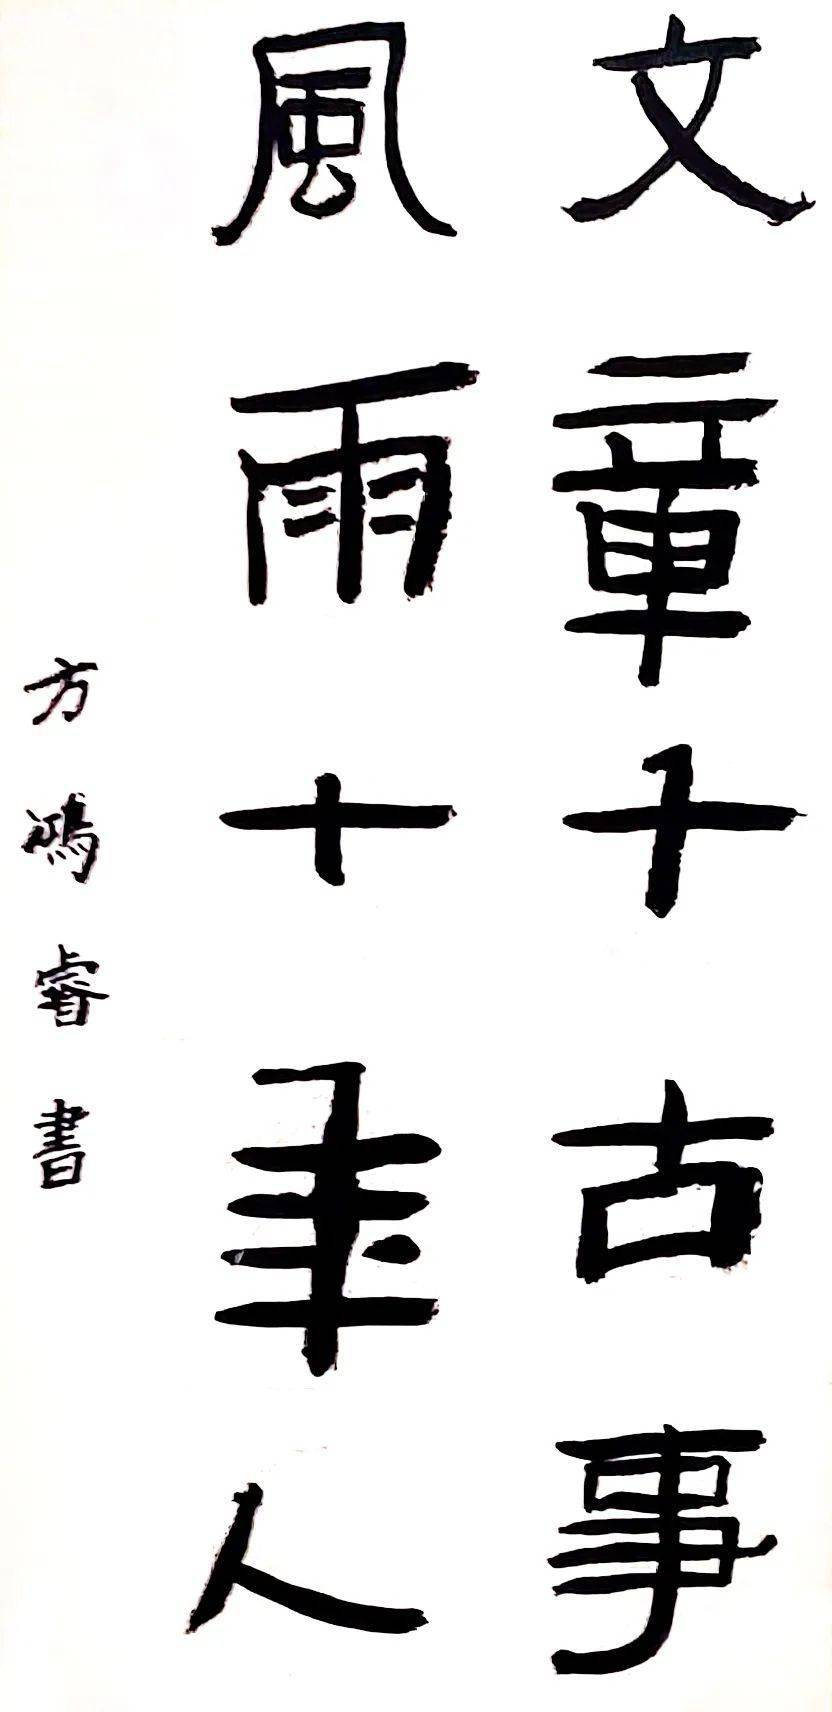 文章千古事
風雨十年人
方鴻睿書